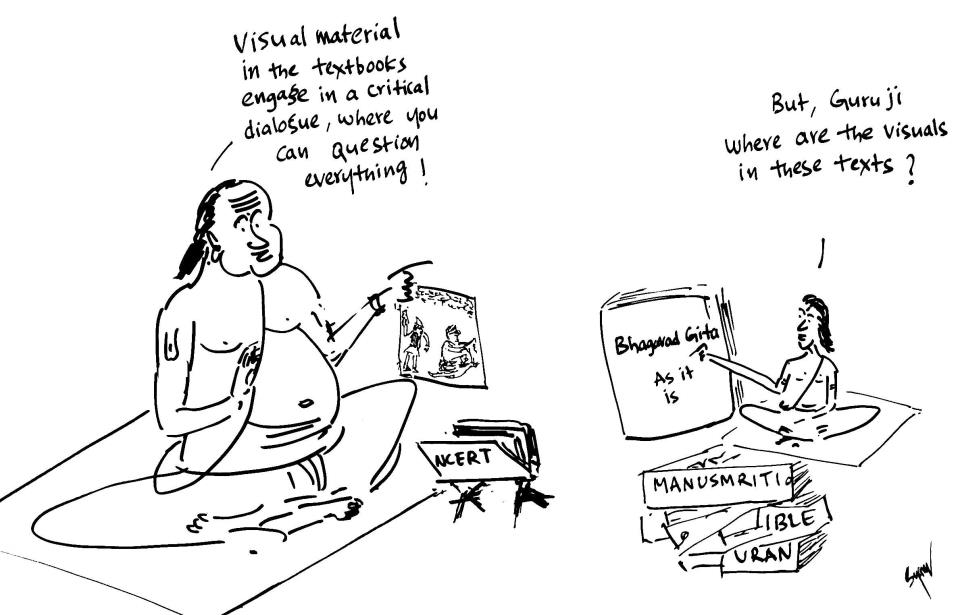 Visual material
in the textbooks
engage in a critical
dialogue, where you
can question
everything !
But, Guruji
where are the visuals
in these texts ?
Bhagavad Gita
As it
is
NCERT
MANUSMRITI
IBLE
URAN